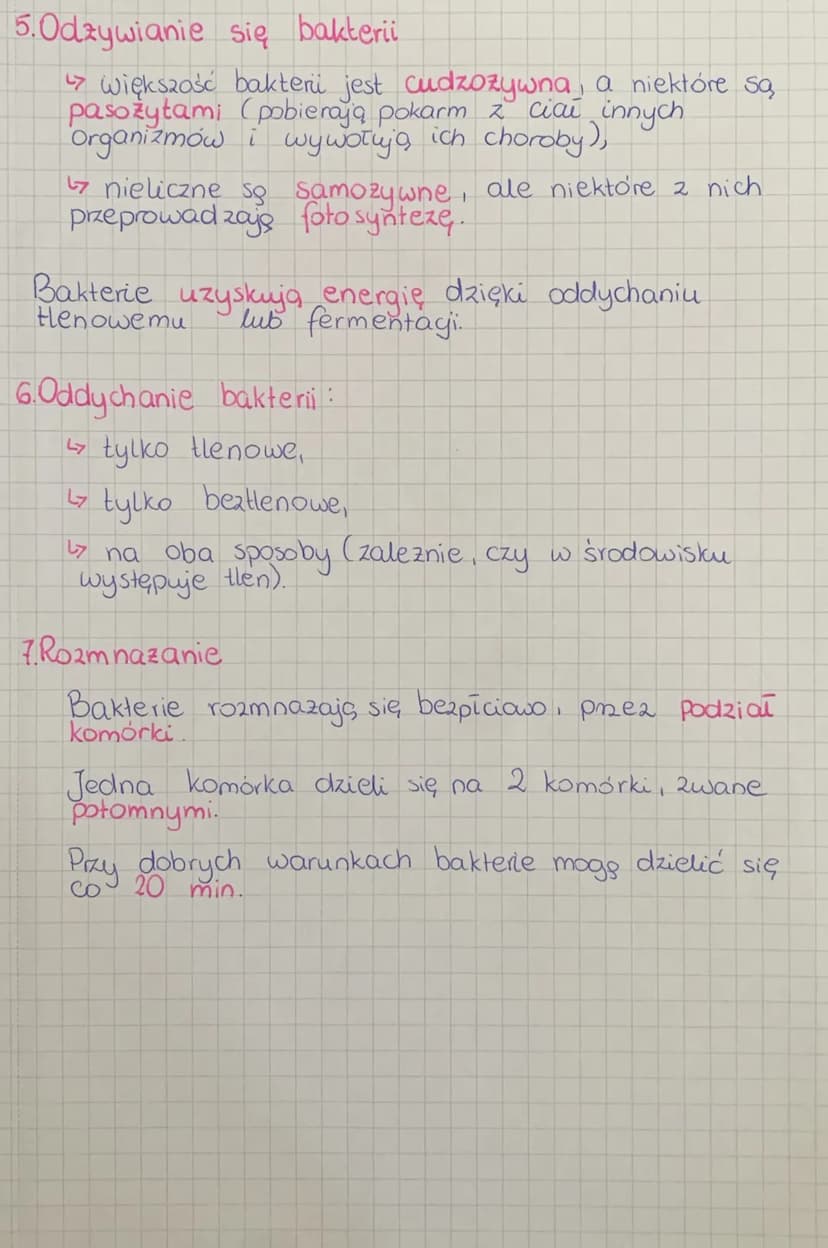 5. Odżywianie się bakterii
↳ większość bakterii jest cudzożywna, a niektóre są
pasożytami (pobierają pokarm z ciał innych
organizmów i wywołują ich choroby),
↳ nieliczne są samożywne, ale niektóre z nich
przeprowadzają fotosyntezę.
Bakterie uzyskują energię dzięki oddychaniu
tlenowemu lub fermentacji.
6. Oddychanie bakterii:
↳ tylko tlenowe,
↳ tylko beztlenowe,
↳ na oba sposoby (zależnie, czy w środowisku
występuje tlen).
7. Rozmnażanie
Bakterie rozmnażają się bezpłciowo, przez podział
komórki.
Jedna komórka dzieli się na 2 komórki, zwane
potomnymi.
Przy dobrych warunkach bakterie mogą dzielić się
co 20 min.